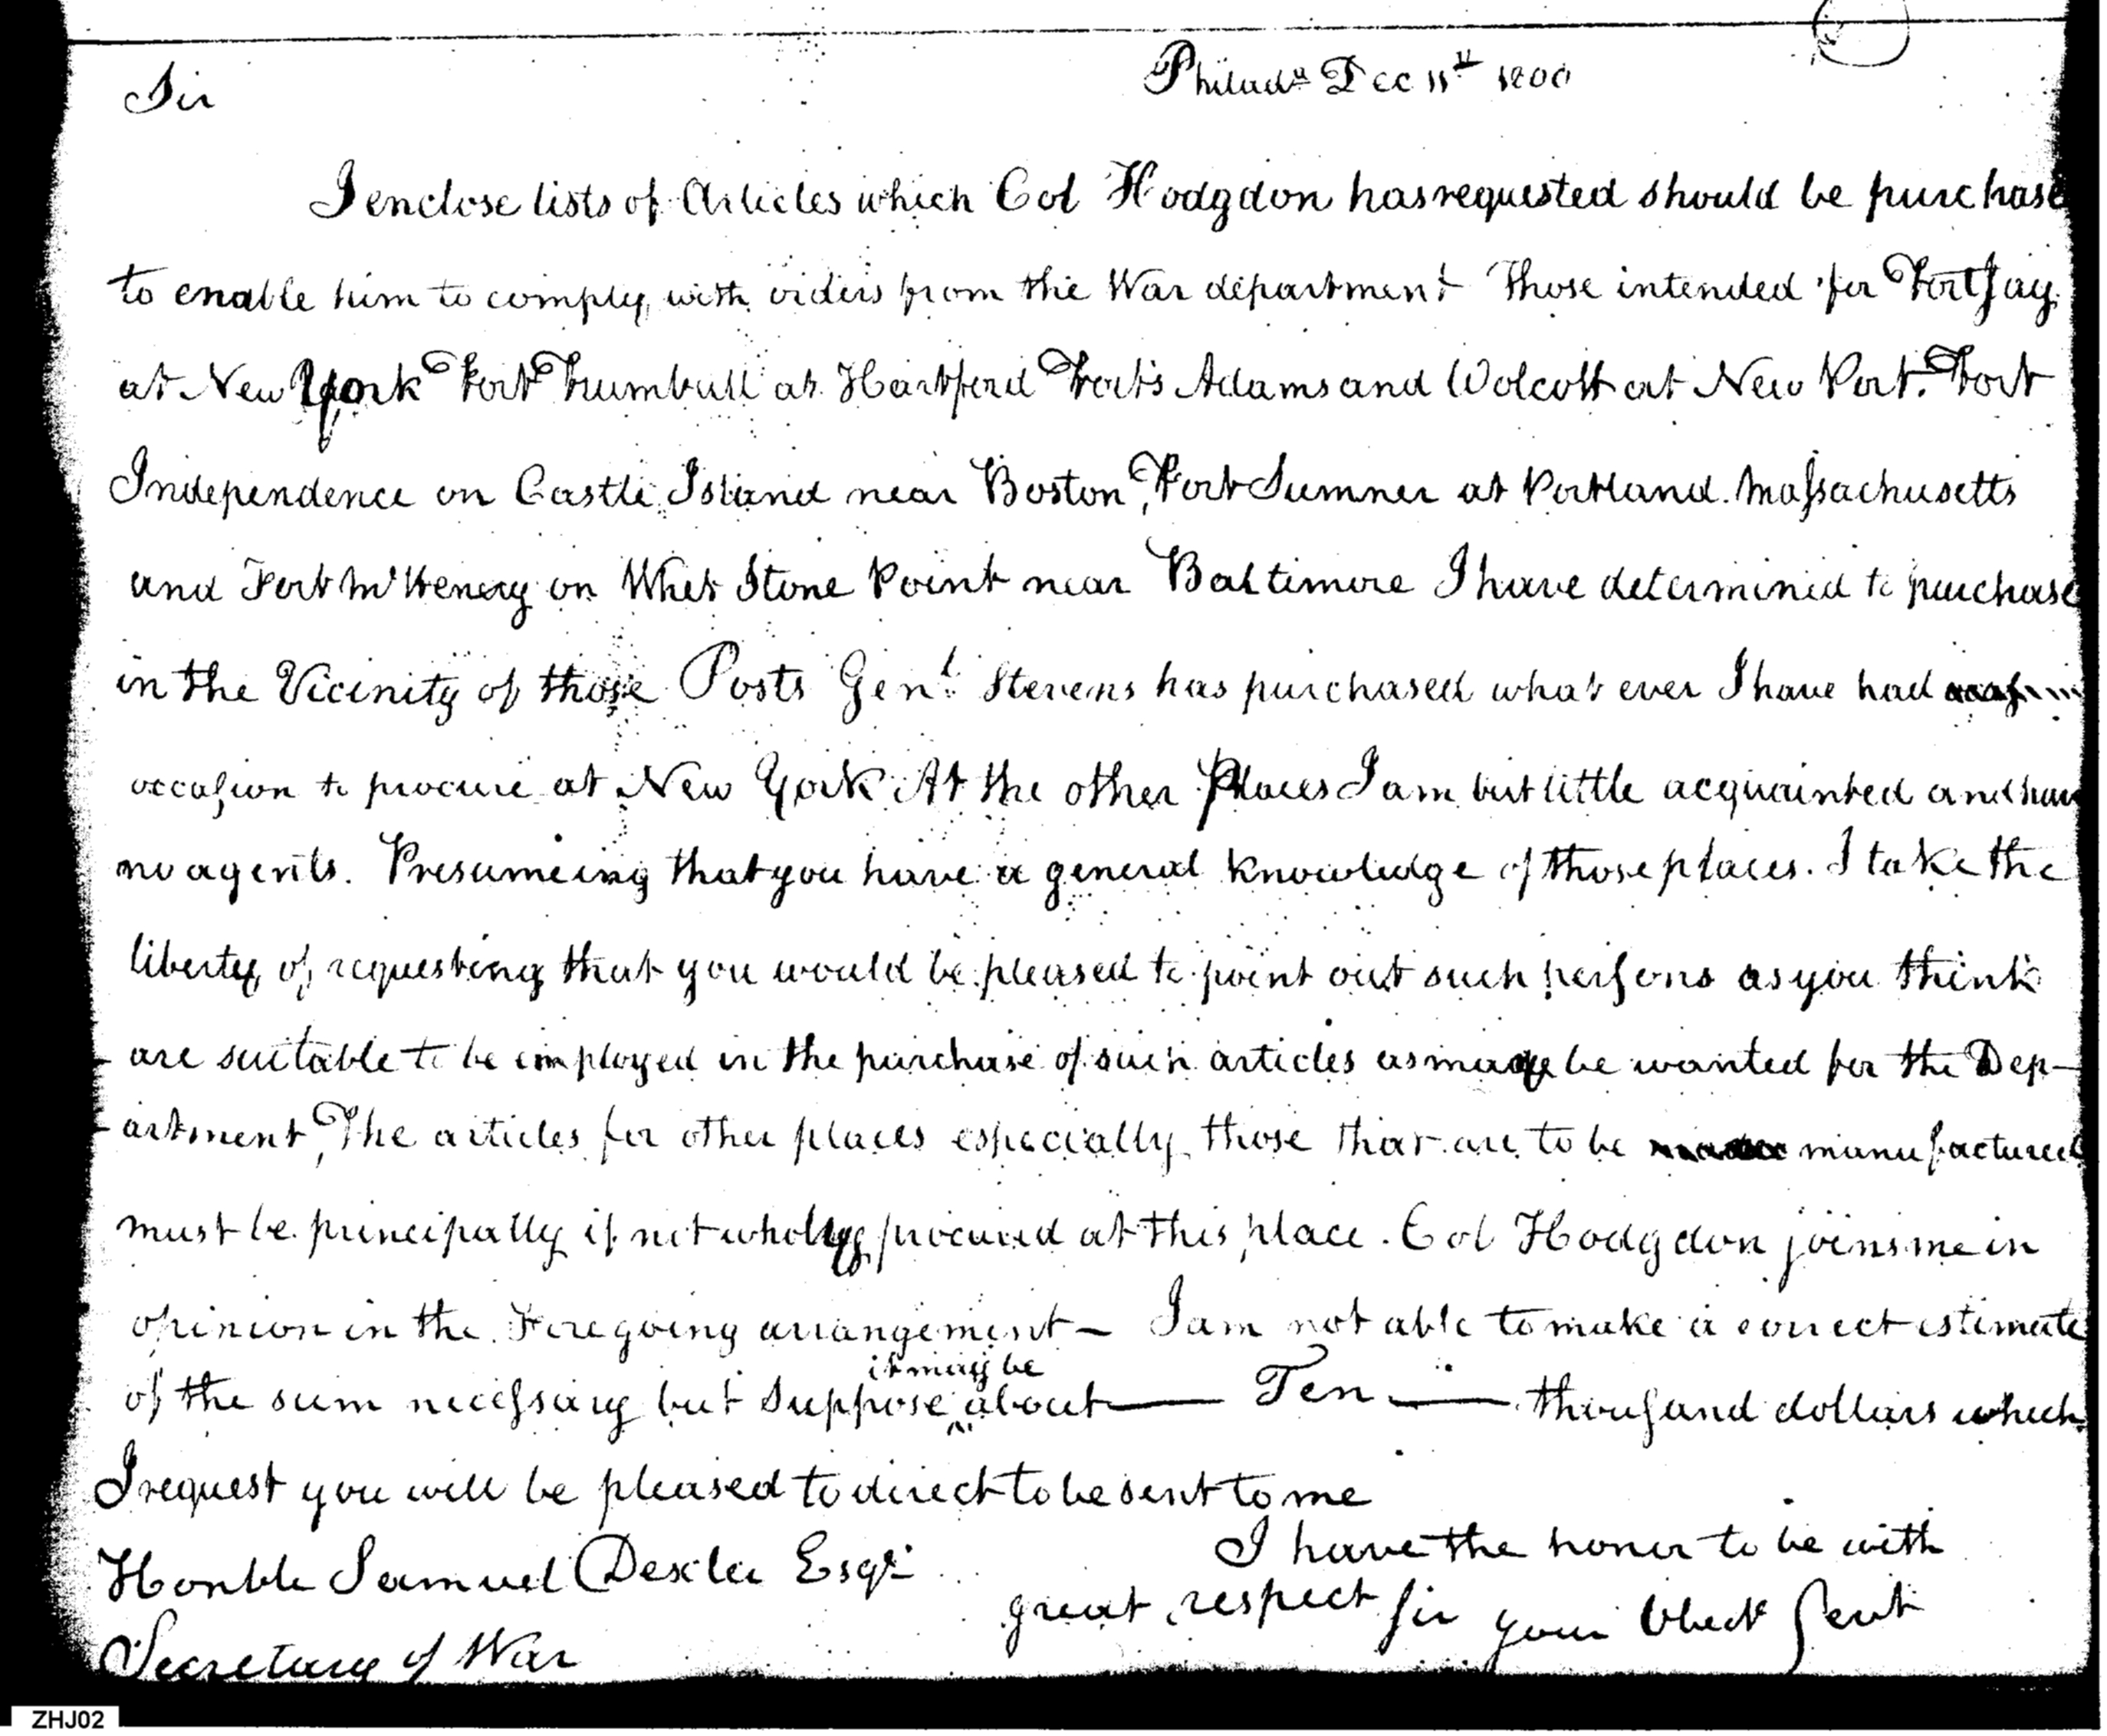 Sir
Philada Dec 11th 1800
I enclose lists of Articles which Col Hodgdon has requested should be purchase
to enable him to comply with orders from the War department Those intended for Fort Jay
at New York Fort Trumbull at Hartford Forts Adams and Wolcott at New Port. Fort
Independence on Castle Island near Boston, Fort Sumner at Portland. Massachusetts
and Fort McHenery on Whet Stone Point near Baltimore I have determined to purchase
in the Vicinity of those Posts Genl. Stevens has purchased what ever I have had
occasion to procure at New York. At the other Places I am but little acquainted and have
no agents. Presumeing that you have a general knowledge of those places. I take the
liberty of requesting that you would be pleased to point out such persons as you think
are suitable to be employed in the purchase of such articles as may be wanted for the Dep-
-artment, The articles for other places especially those that are to be manufactured
must be principally if not wholly procured at this place. Col Hodgdon joins me in
opinion in the Foregoing arrangement - I am not able to make a correct estimate
it may be
of the sum necessary but suppose ^ about — Ten — thousand dollars which
I request you will be pleased to direct to be sent to me
I have the honor to be with
Honble Samuel Dexter Esqr.
great respect Sir your Obedt Servt
Secretary of War
ZHJ02